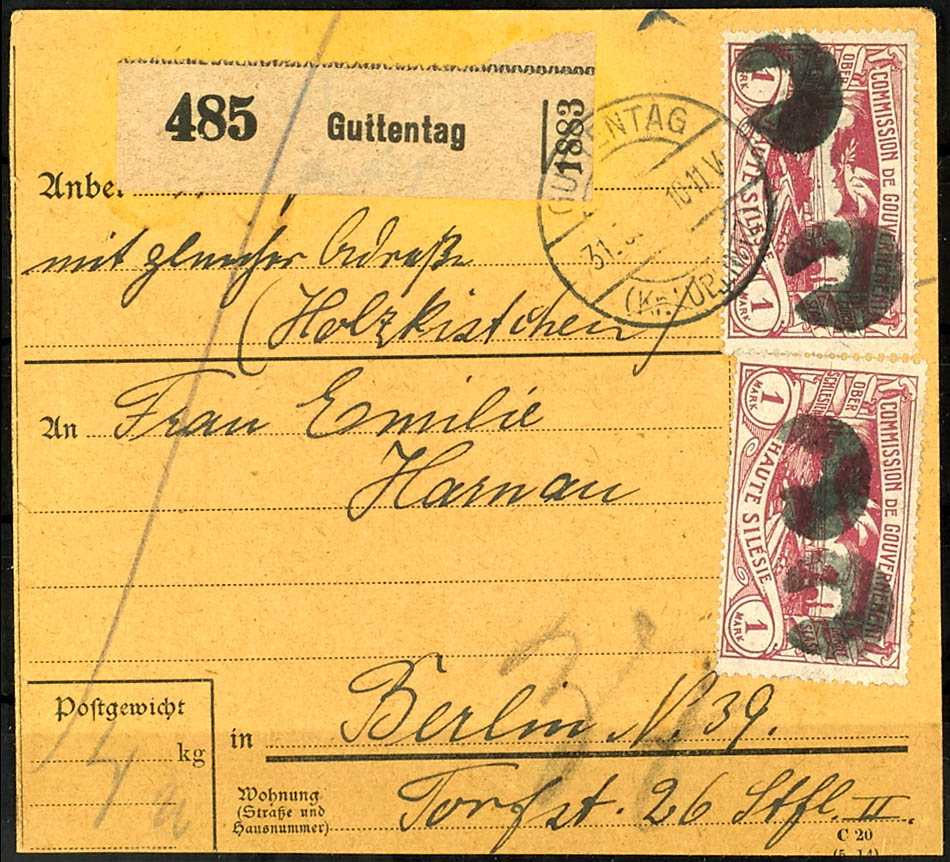 485 Guttentag 1883
Anbei
mit gleicher Adreße
(Holzkistchen)
An Frau Emilie
Harnau
Postgewicht
kg
in Berlin N. 39.
Wohnung
(Straße und
Hausnummer)
Torfst. 26 Stfl. II.
C 20
(5. 14)
GUTTENTAG
31. 10-11 V
(Kr. LUBLINITZ)
COMMISSION DE GOUVERNEMENT
OBER
HAUTE SILÉSIE
1
MARK
1
MARK
COMMISSION DE GOUVERNEMENT
OBER
SCHLESIEN
HAUTE SILÉSIE
1
MARK
1
MARK